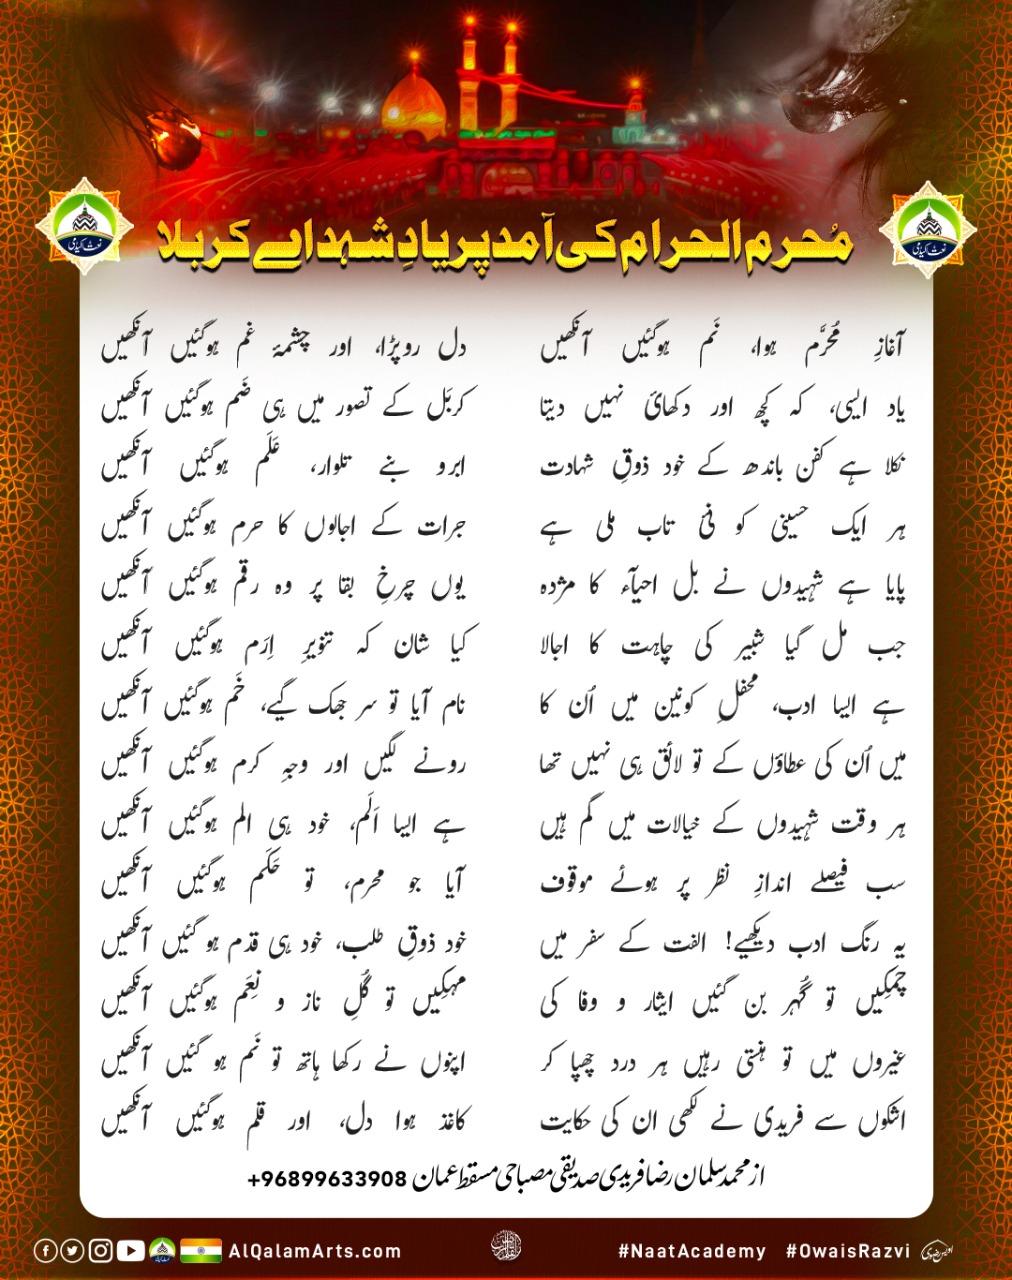 مُحرم الحرام کی آمد پر یادِ شہداے کربلا
آغازِ مُحرَّم ہوا، نَم ہوگئیں آنکھیں دل رو پڑا، اور چشمۂ غم ہوگئیں آنکھیں
یاد ایسی، کہ کچھ اور دکھائی نہیں دیتا کربَل کے تصور میں ہی ضَم ہوگئیں آنکھیں
نکلا ہے کفن باندھ کے خود ذوقِ شہادت ابرو بنے تلوار، عَلَم ہوگئیں آنکھیں
ہر ایک حسینی کو نئی تاب ملی ہے جرات کے اجالوں کا حرم ہوگئیں آنکھیں
پایا ہے شہیدوں نے بل احیآء کا مژدہ یوں چرخِ بقا پر وہ رقم ہوگئیں آنکھیں
جب مل گیا شبیر کی چاہت کا اجالا کیا شان کہ تنویرِ اِرَم ہوگئیں آنکھیں
ہے ایسا ادب، محفلِ کونین میں اُن کا نام آیا تو سر جھک گیے، خَم ہوگئیں آنکھیں
میں اُن کی عطاؤں کے تو لائق ہی نہیں تھا رونے لگیں اور وجہِ کرم ہوگئیں آنکھیں
ہر وقت شہیدوں کے خیالات میں گم ہیں ہے ایسا اَلَم، خود ہی الم ہوگئیں آنکھیں
سب فیصلے اندازِ نظر پر ہوئے موقوف آیا جو محرم، تو حَکَم ہوگئیں آنکھیں
یہ رنگ ادب دیکھیے! الفت کے سفر میں خود ذوقِ طلب، خود ہی قدم ہو گئیں آنکھیں
چمکیں تو گُہر بن گئیں ایثار و وفا کی مہکیں تو گُلِ ناز و نِعَم ہوگئیں آنکھیں
غیروں میں تو ہنستی رہیں ہر درد چھپا کر اپنوں نے رکھا ہاتھ تو نَم ہو گئیں آنکھیں
اشکوں سے فریدی نے لکھی ان کی حکایت کاغذ ہوا دل، اور قلم ہوگئیں آنکھیں
از محمد سلمان رضا فریدی صدیقی مصباحی مسقط عمان +96899633908
AlQalamArts.com #NaatAcademy #OwaisRazvi